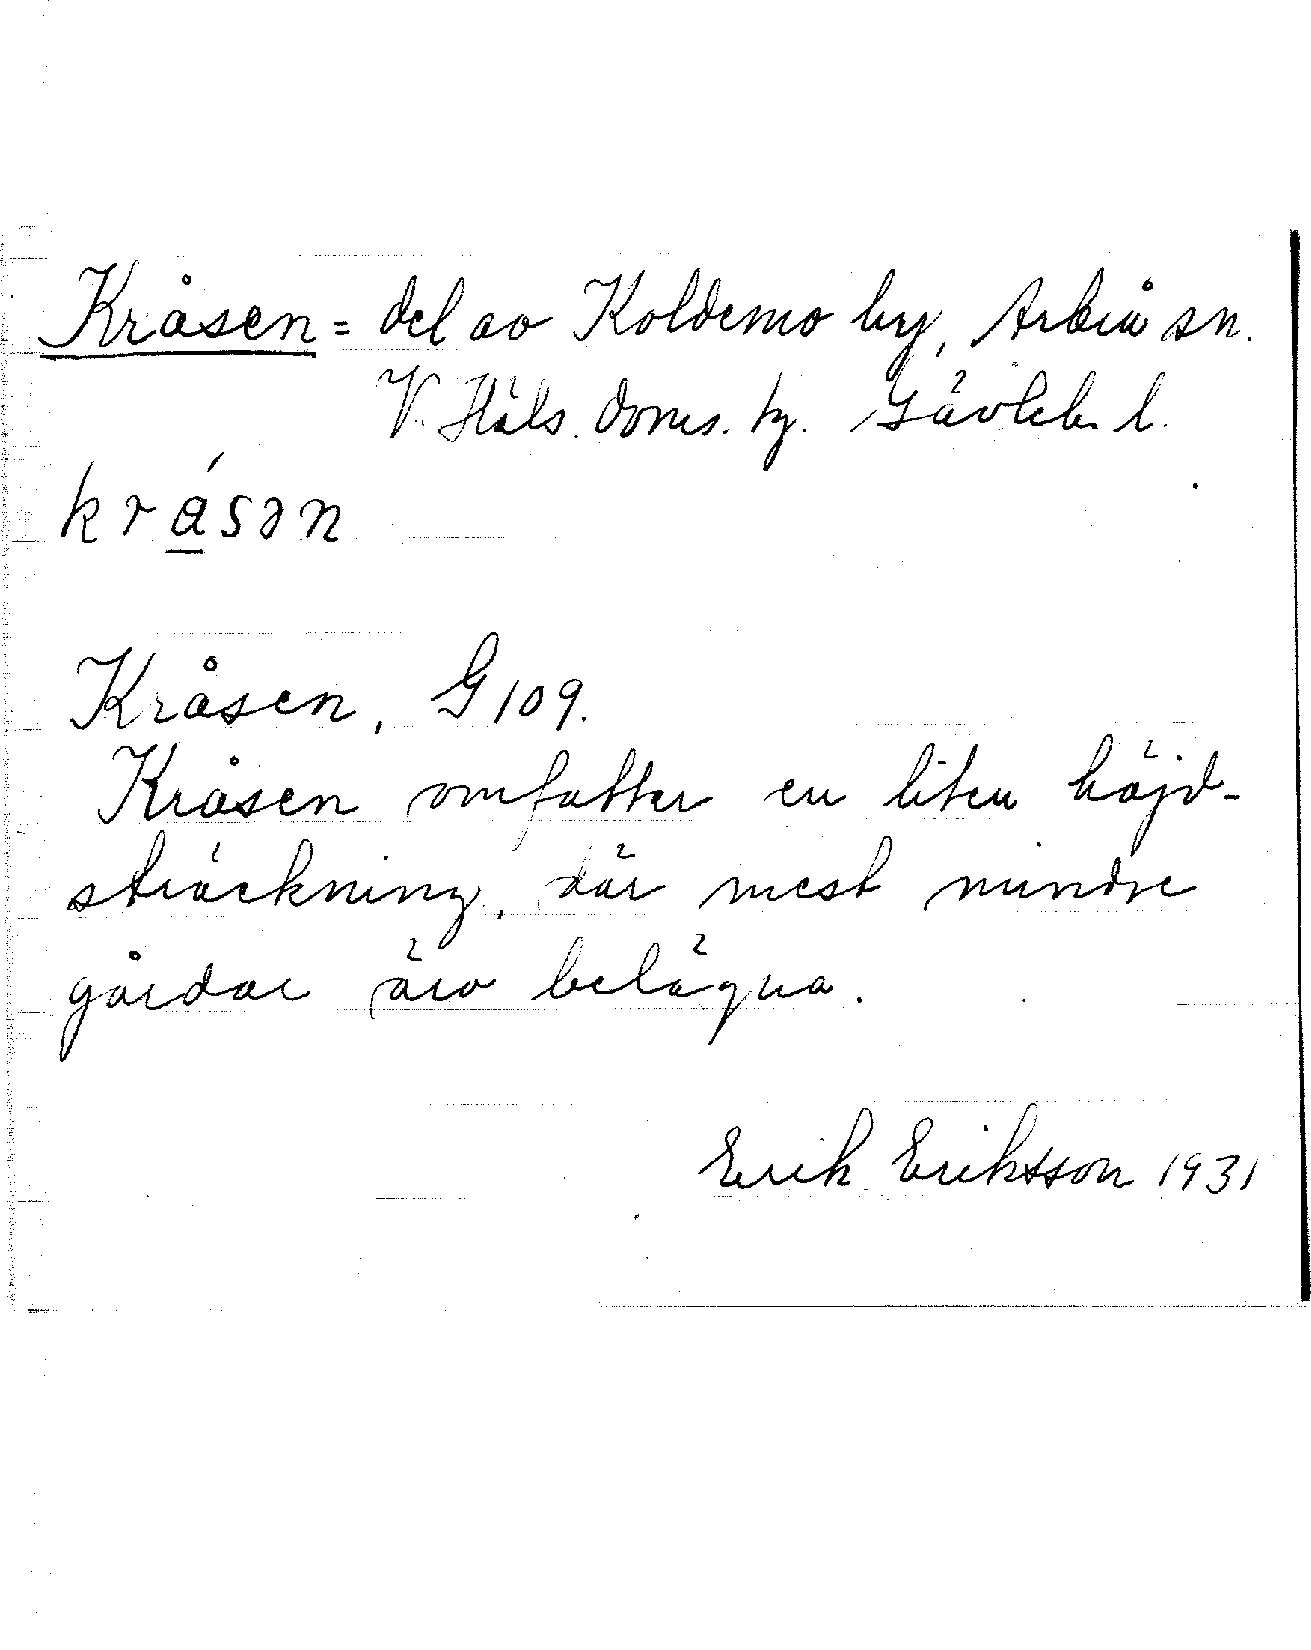 Kråsen = del av Koldemo by, Arbrå sn.
V. Häls. doms. hg. Gävleb. l.
krásən
Kråsen, G 109.
Kråsen omfattar en liten höjd-
sträckning, där mest mindre
gårdar äro belägna.
Erik Eriksson 1931